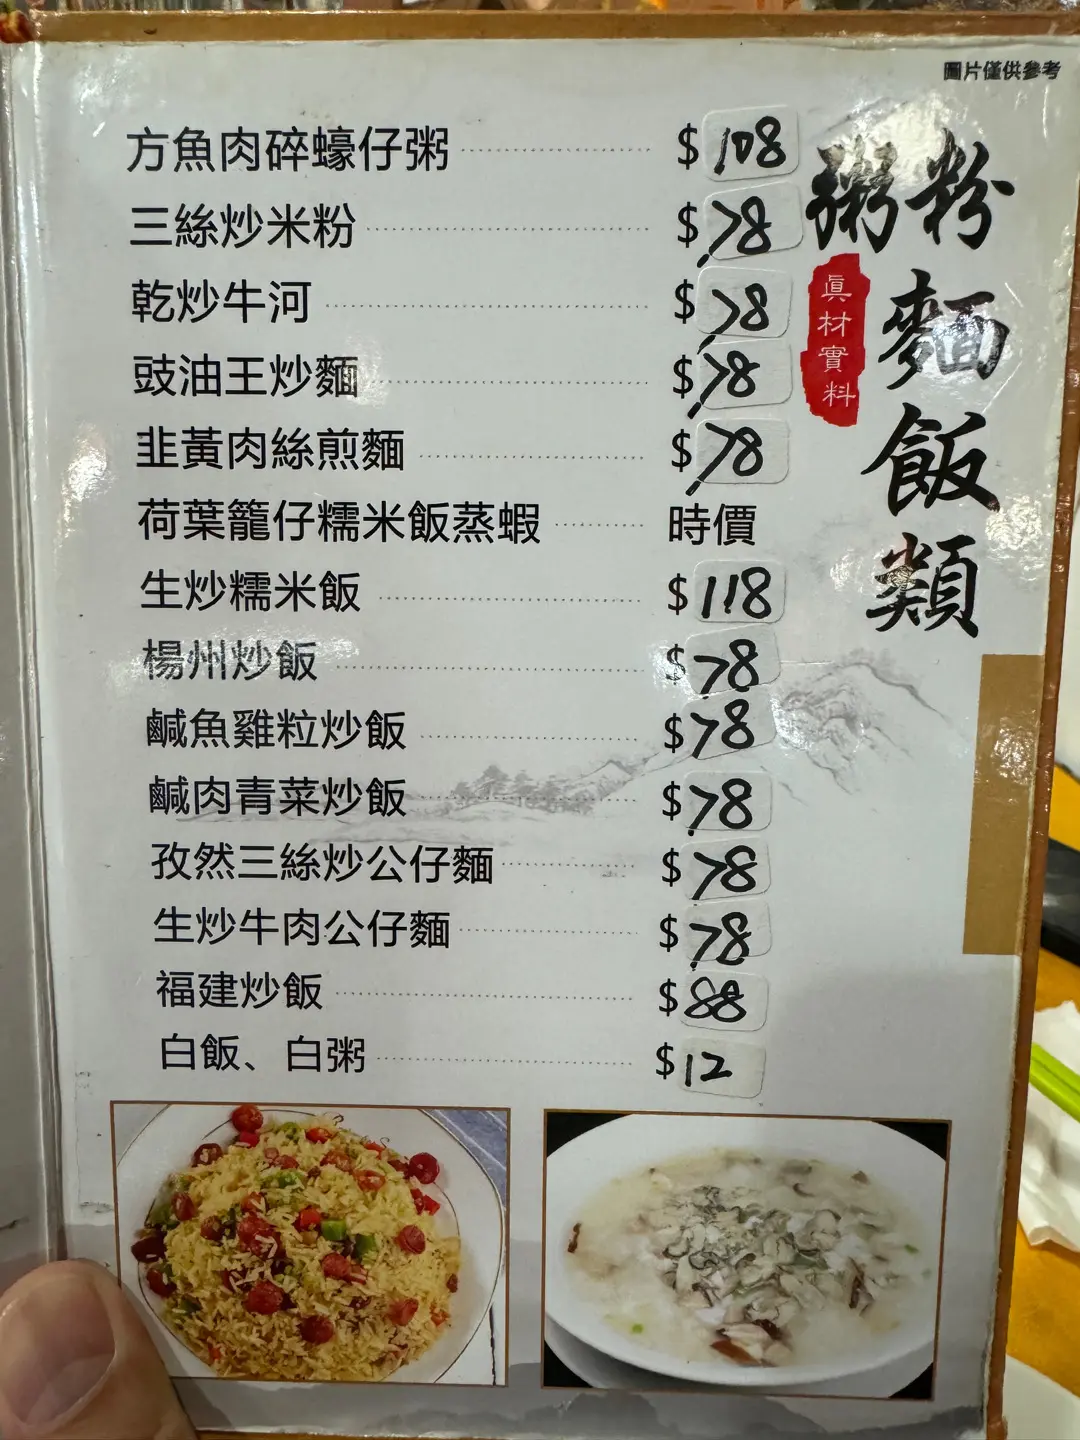 圖片僅供參考
粥粉
麵
飯
類
真材實料
方魚肉碎蠔仔粥 $108
三絲炒米粉 $78
乾炒牛河 $78
豉油王炒麵 $78
韭黃肉絲煎麵 $78
荷葉籠仔糯米飯蒸蝦 時價
生炒糯米飯 $118
楊州炒飯 $78
鹹魚雞粒炒飯 $78
鹹肉青菜炒飯 $78
孜然三絲炒公仔麵 $78
生炒牛肉公仔麵 $78
福建炒飯 $88
白飯、白粥 $12